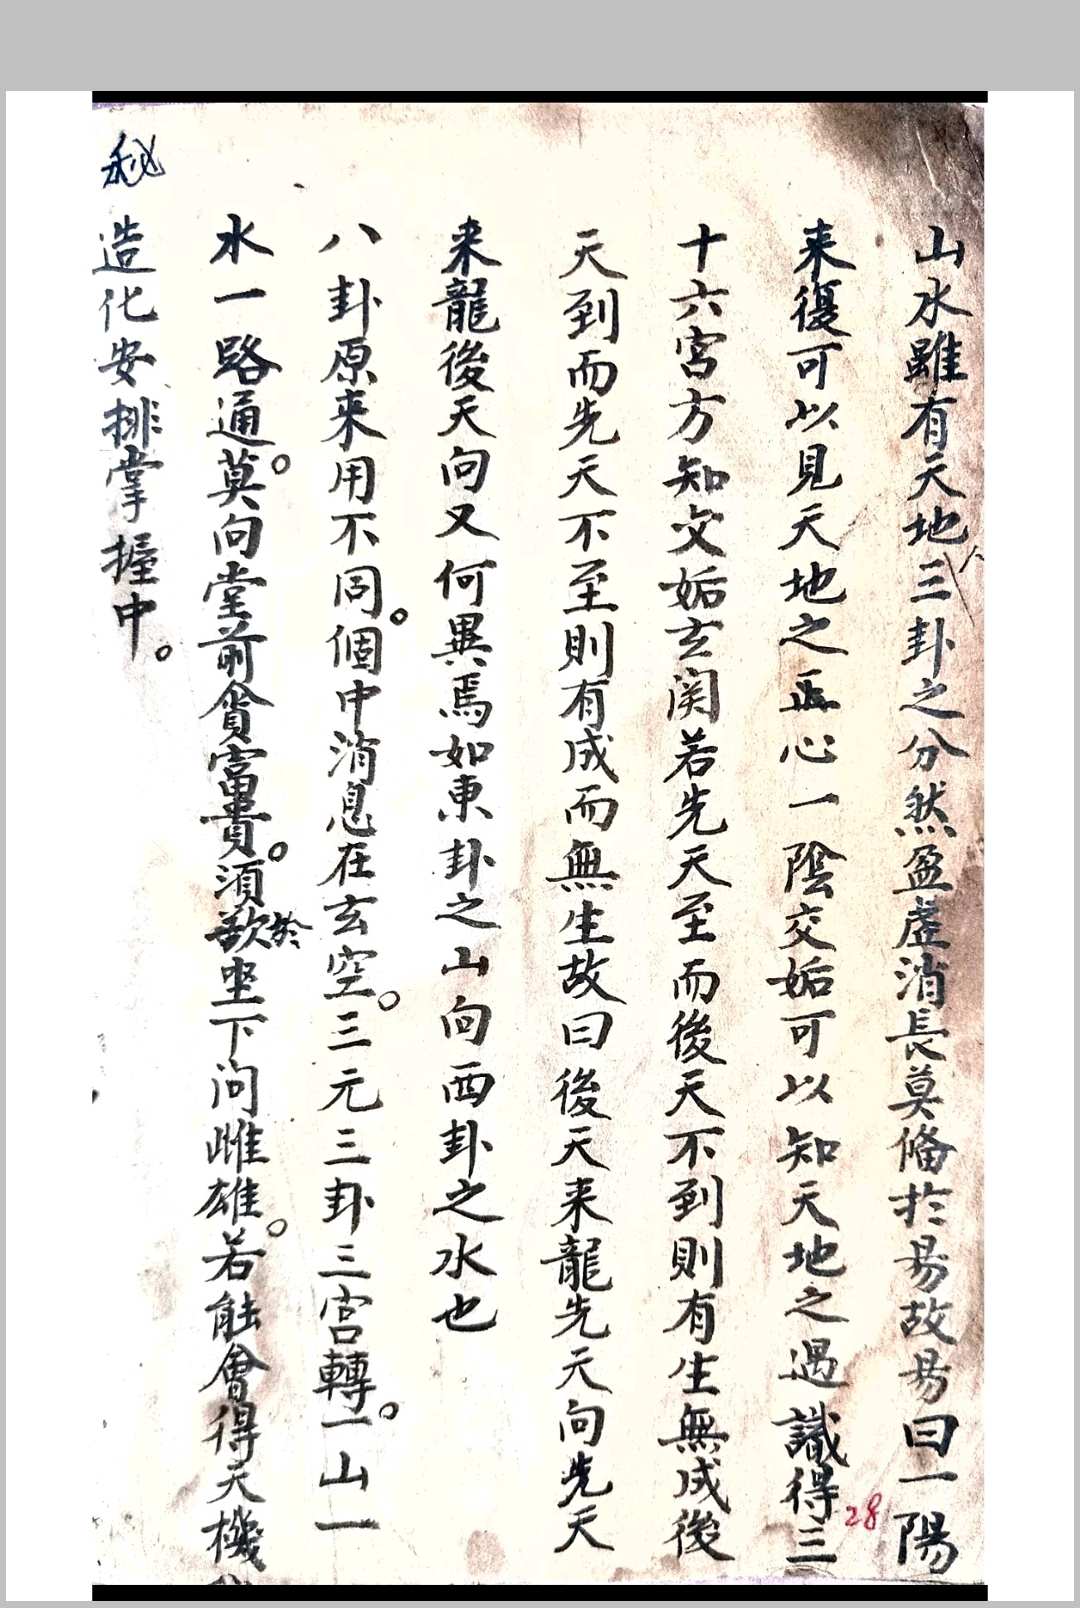 山水雖有天地人三卦之分然盈虛消長莫偹於易故易曰一陽
来復可以見天地之正心一陰交姤可以知天地之遇識得三
十六宮方知交姤玄関若先天至而後天不到則有生無成後
天到而先天不至則有成而無生故曰後天来龍先天向先天
来龍後天向又何異焉如東卦之山向西卦之水也
八卦原来用不同。個中消息在玄空。三元三卦三宮轉。一山一
水一路通。莫向堂前貪富貴。須歆於坐下问雌雄。若能會得天機
造化安排掌握中。
秘
28